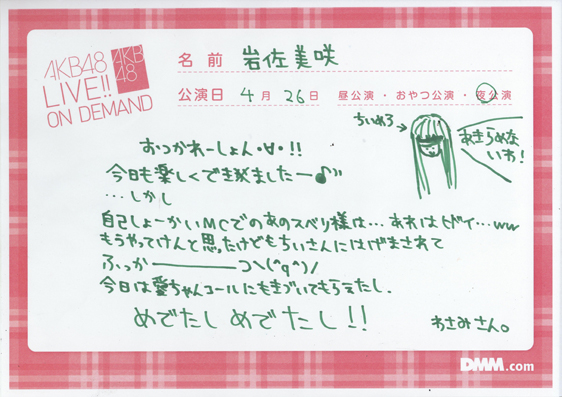 AKB48
LIVE!!
ON DEMAND
AKB
48
名前 岩佐美咲
公演日 4月26日 昼公演・おやつ公演・夜公演
ちいめろ→
あきらめな
いわ!
おっかれーしょん・∀・!!
今日も楽しくできましたー♪
…しかし
自己しょーかいMCでのあのスベリ様は…あれはヒドイ…ww
もうやってけんと思ったけどもちぃさんにはげまされて
ふっかーーつ\(^q^)/
今日は愛ちゃんコールにもきづいてもらえたし、
めでたしめでたし!!
わさみさん。
DMM.com